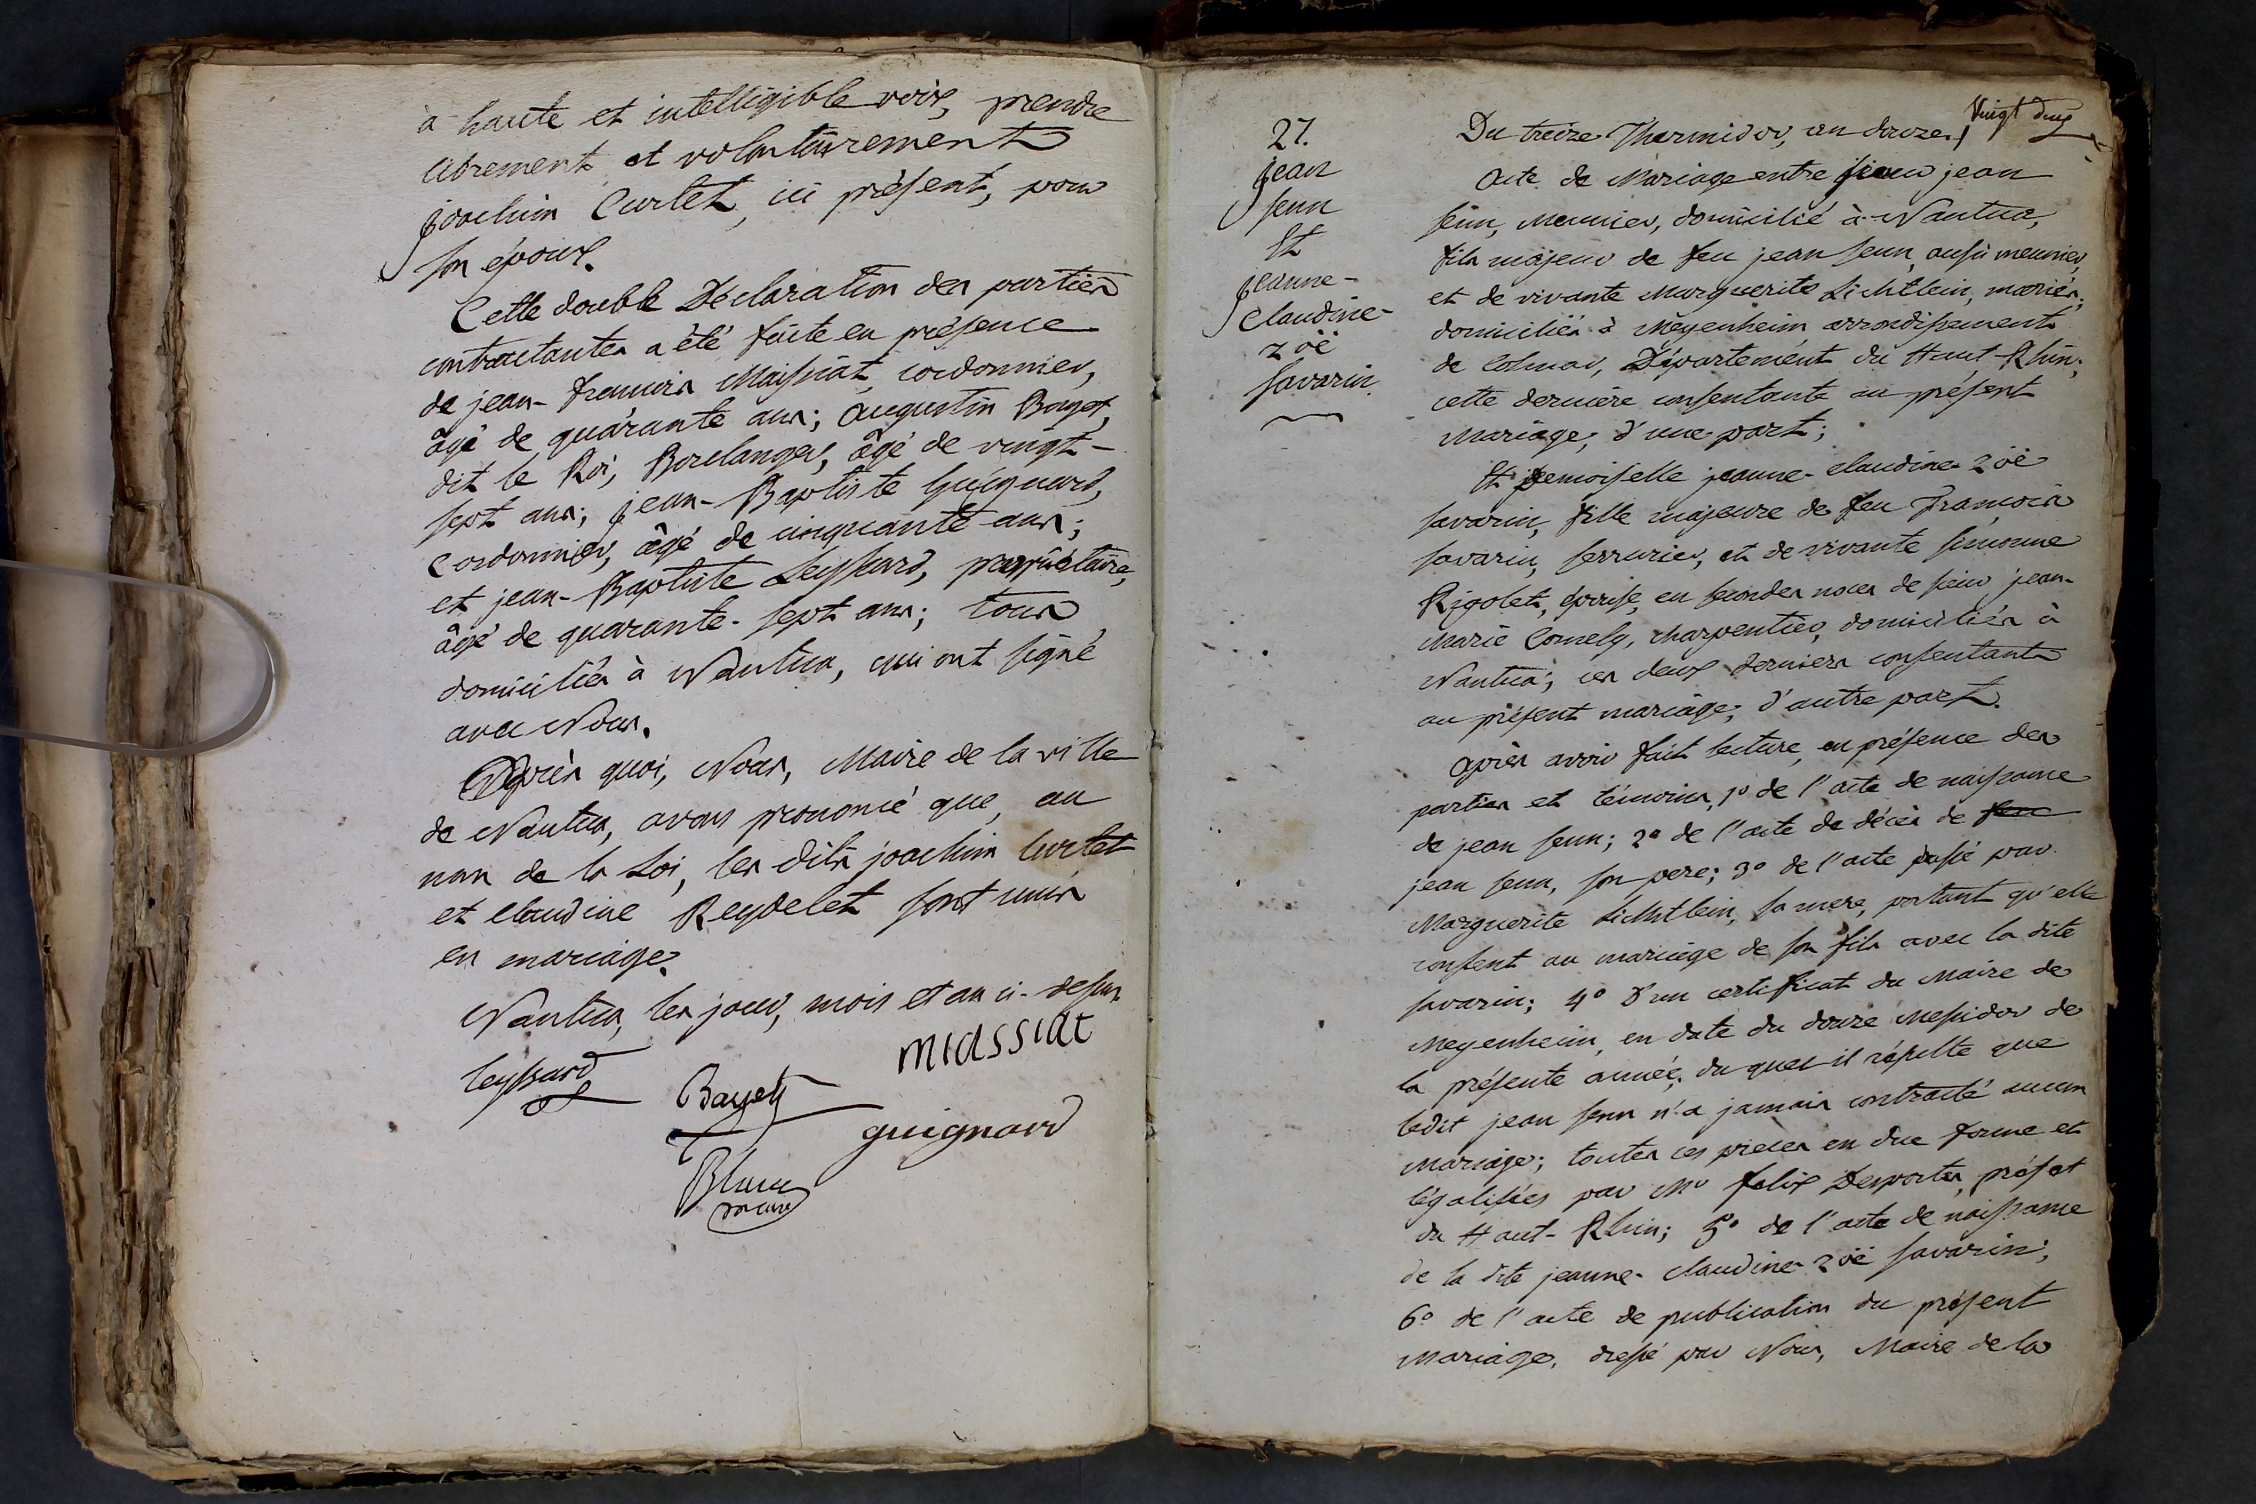 à haute et intelligible voix, prendre
librement et volontairement
joachim Curlet, ici présent, pour
son époux.
Cette double Déclaration des parties
contractantes a été faite en présence
de jean-François Maissiat, cordonnier,
âgé de quarante ans; Augustin Bayet,
dit le Roi, Boulanger, âgé de vingt-
sept ans; jean-Baptiste Guignard,
Cordonnier, âgé de cinquante ans;
et jean-Baptiste Leyssard, propriétaire,
âgé de quarante-sept ans; tous
domiciliés à Nantua, qui ont signé
avec Nous.
Après quoi, Nous, Maire de la ville
de Nantua, avons prononcé que, au
nom de la Loi, les dits joachim Curlet
et Claudine Reydelet sont unis
en mariage.
Nantua, les jour, mois et an ci-dessus
miassiat
leyssard
Bayet
guignard
Blanc
maire
Vingt deux
27.
jean
senn
Et
jeanne-
Claudine-
zoë
savarin.
Du treize Thermidor, an douze,
Acte de Mariage entre sieur jean
senn, Meunier, domicilié à Nantua,
fils majeur de feu jean senn, aussi meunier,
et de vivante Marguerite Lichtlein, mariés,
domiciliés à Meyenheim arrondissement
de Colmar, Département du Haut-Rhin;
cette dernière consentante au présent
Mariage, d'une part;
Et Demoiselle jeanne-claudine-zoë
savarin, fille majeure de feu François
savarin, serrurier, et de vivante simonne
Rigolet, épouse, en secondes noces de sieur jean-
Marie Comely, charpentier, domiciliés à
Nantua; ces deux derniers consentants
au présent mariage, d'autre part.
Après avoir fait lecture, en présence des
parties et témoins, 1° de l'acte de naissance
de jean senn; 2° de l'acte de décès de feu
jean senn, son pere; 3° de l'acte passé par
Marguerite Lichtlein, sa mere, portant qu'elle
consent au mariage de son fils avec la dite
savarin; 4° d'un certificat du Maire de
Meyenheim, en date du douze Messidor de
la présente année, du quel il résulte que
ledit jean senn n'a jamais contracté aucun
Mariage; toutes ces pieces en due forme et
légalisées par Mr felix Desportes, préfet
du Haut-Rhin; 5° de l'acte de naissance
de la dite jeanne-claudine-zoë savarin;
6° de l'acte de publication du présent
Mariage, dressé par Nous, Maire de la